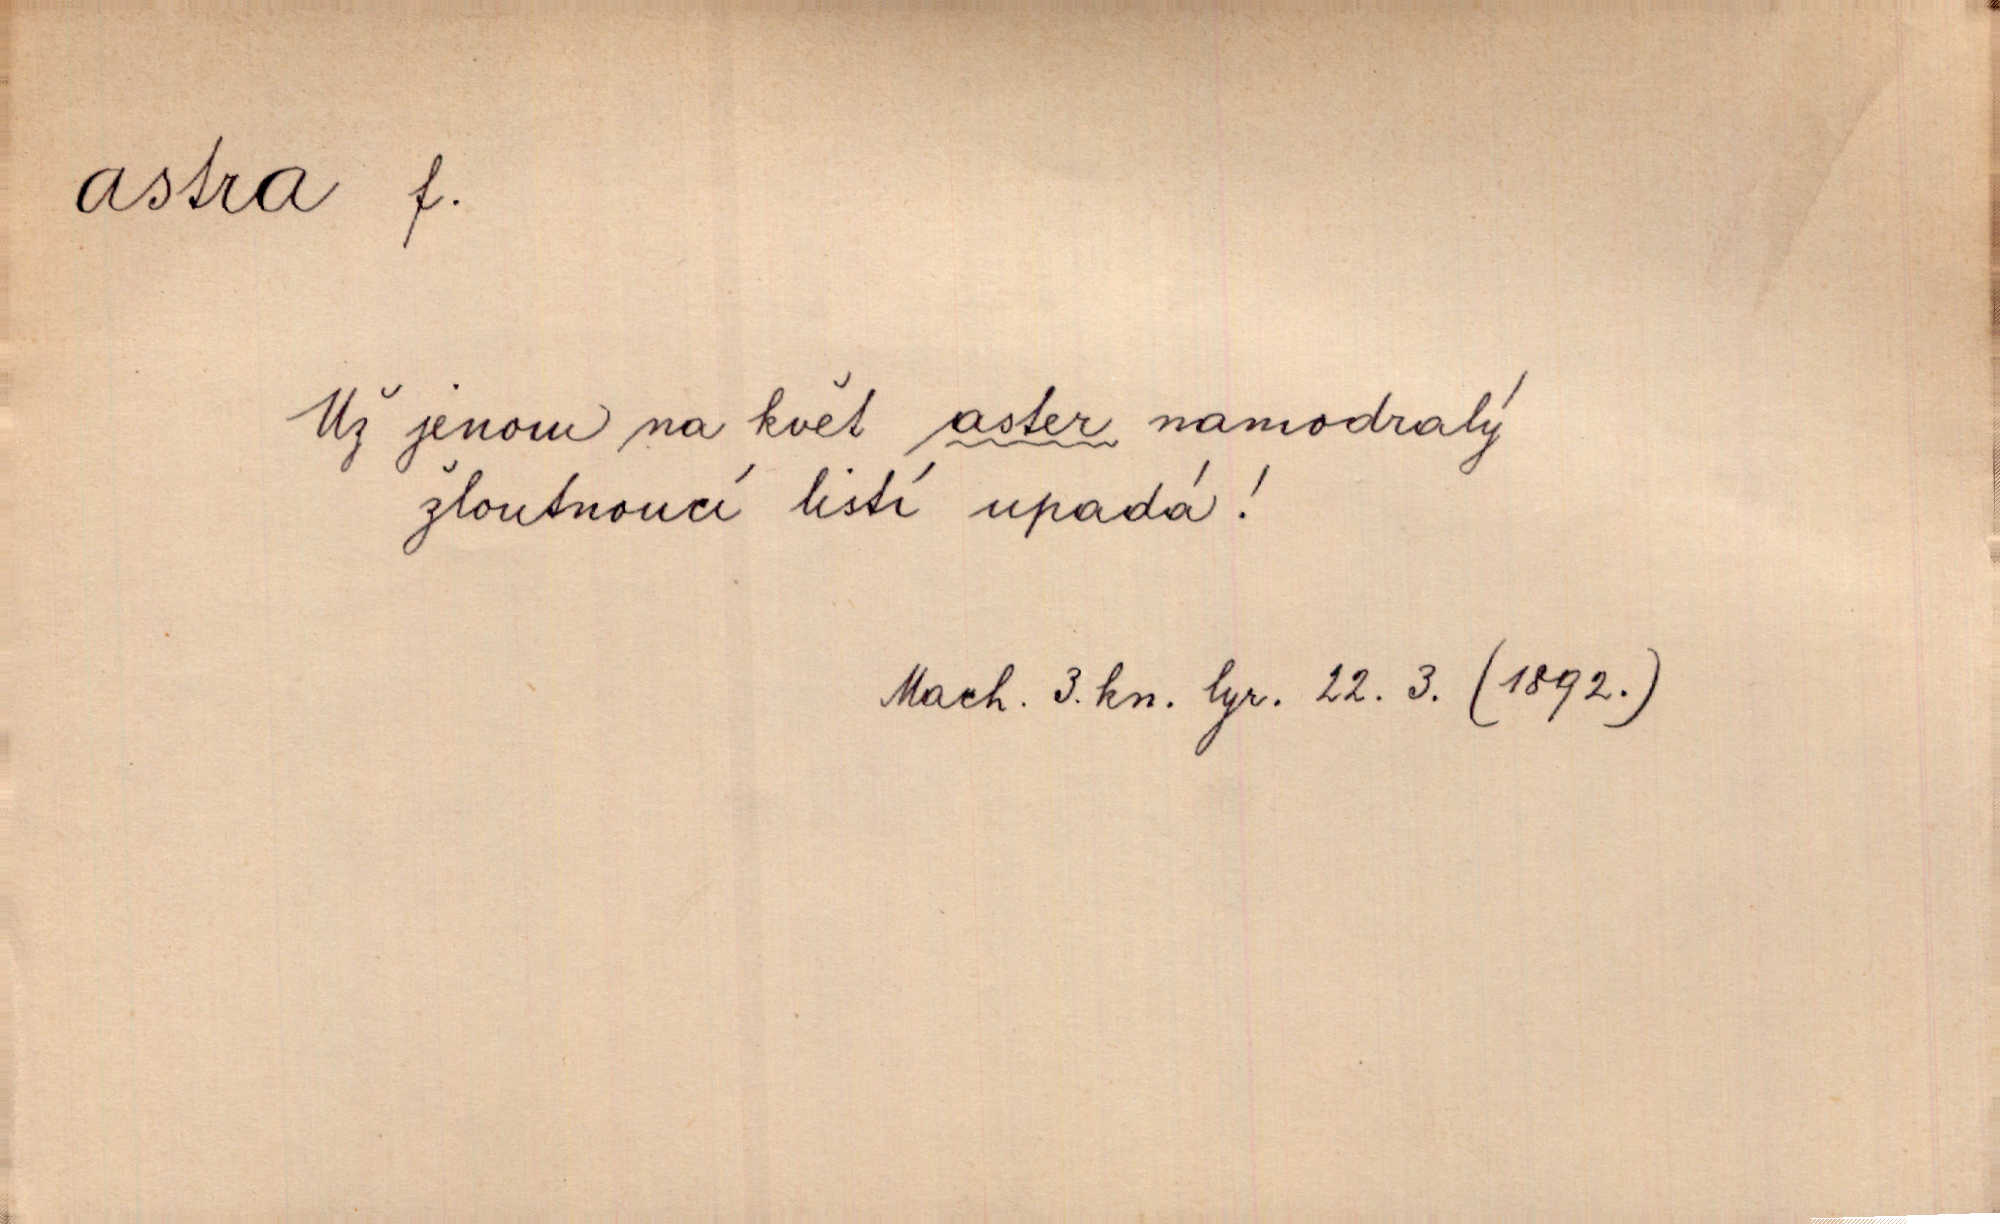 astra f.
Už jenom na květ aster namodralý
žloutnoucí listí upadá!
Mach. 3. kn. lyr. 22. 3. (1892.)